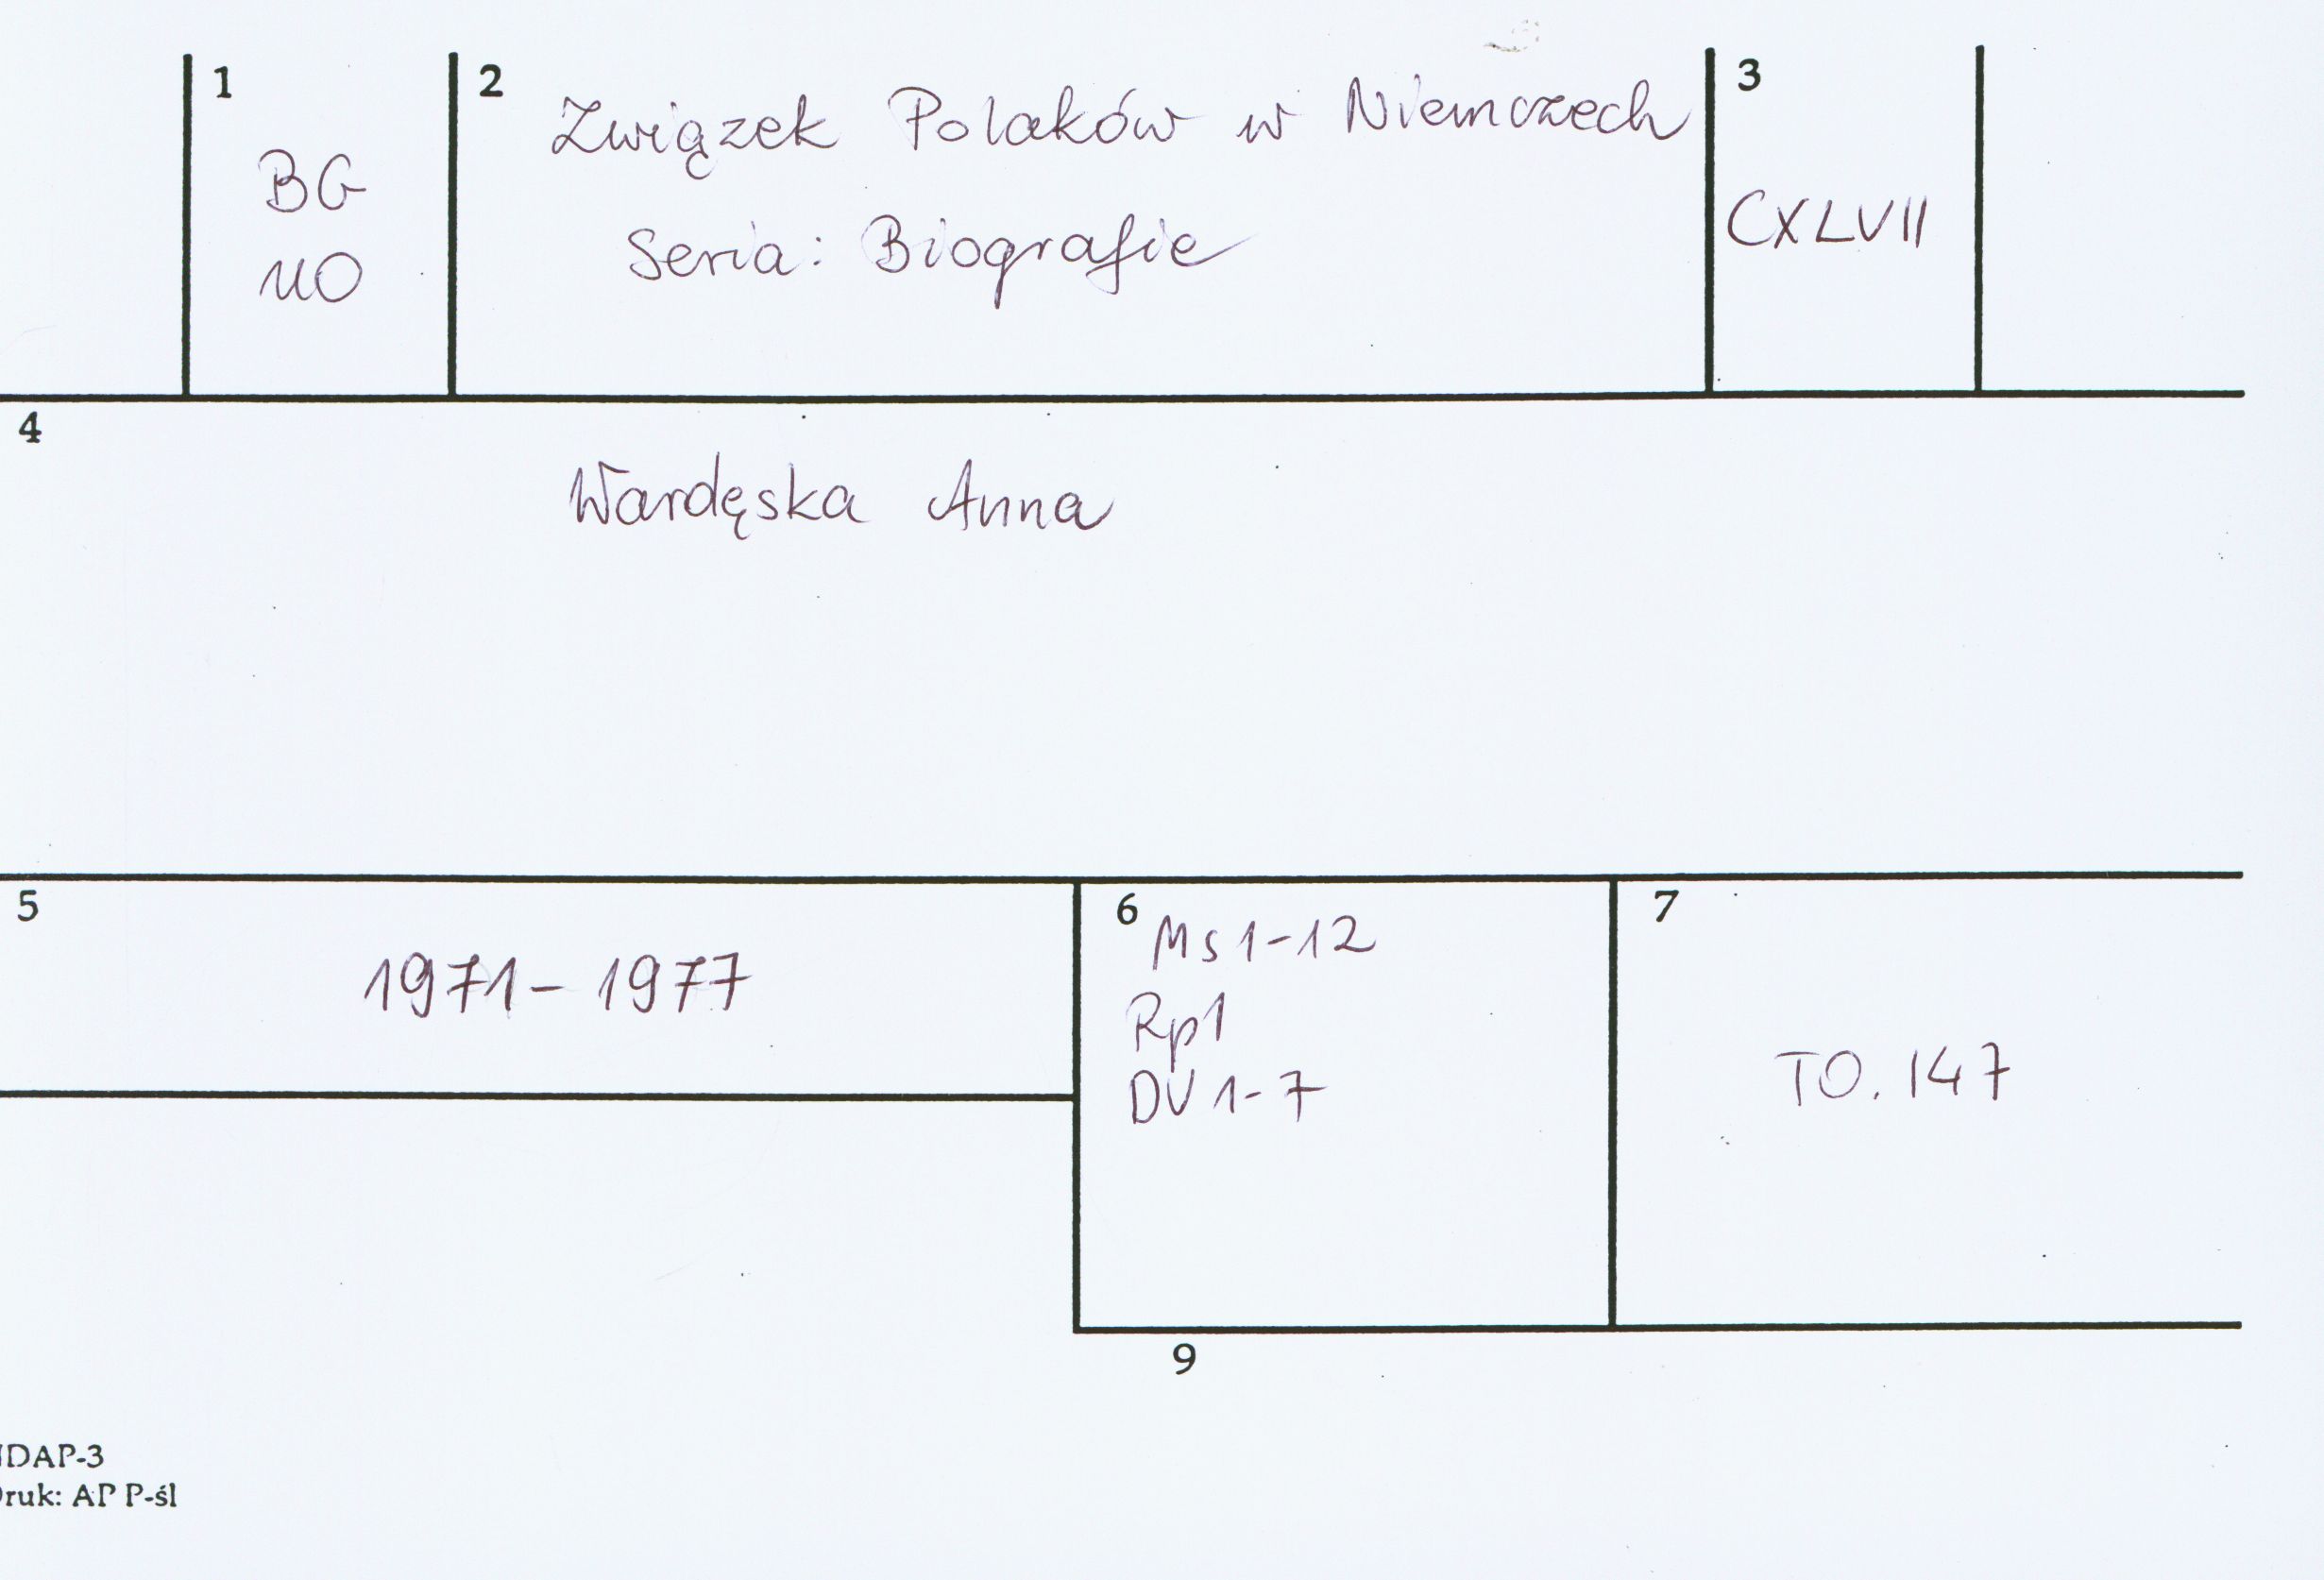 1
BG
UO
2
Związek Polaków w Niemczech
Seria: Biografie
3
CXLVII
4
Wardęska Anna
5
1971-1977
6
Ms 1-12
Rp 1
DV 1-7
7
TO. 147
9
NDAP-3
Druk: AP P-śl